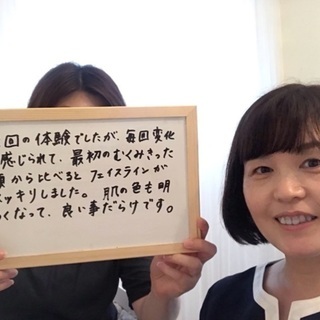 回の体験でしたが、毎回変化
感じられて、最初のむくみきった
から比べると フェイスラインが
ッキリしました。肌の色も明
くなって、良い事だらけです。